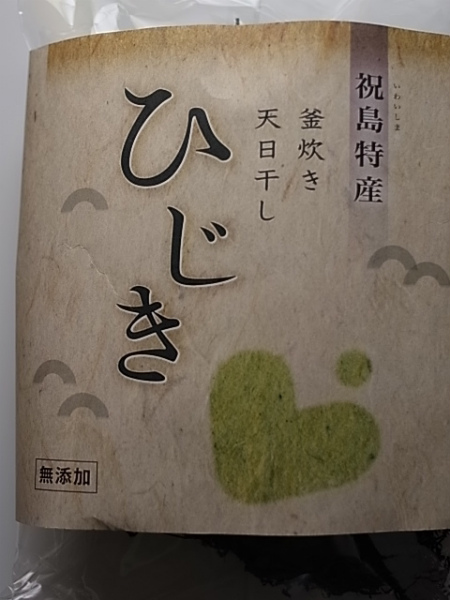 祝島特産
いわいしま
釜炊き
天日干し
ひじき
無添加